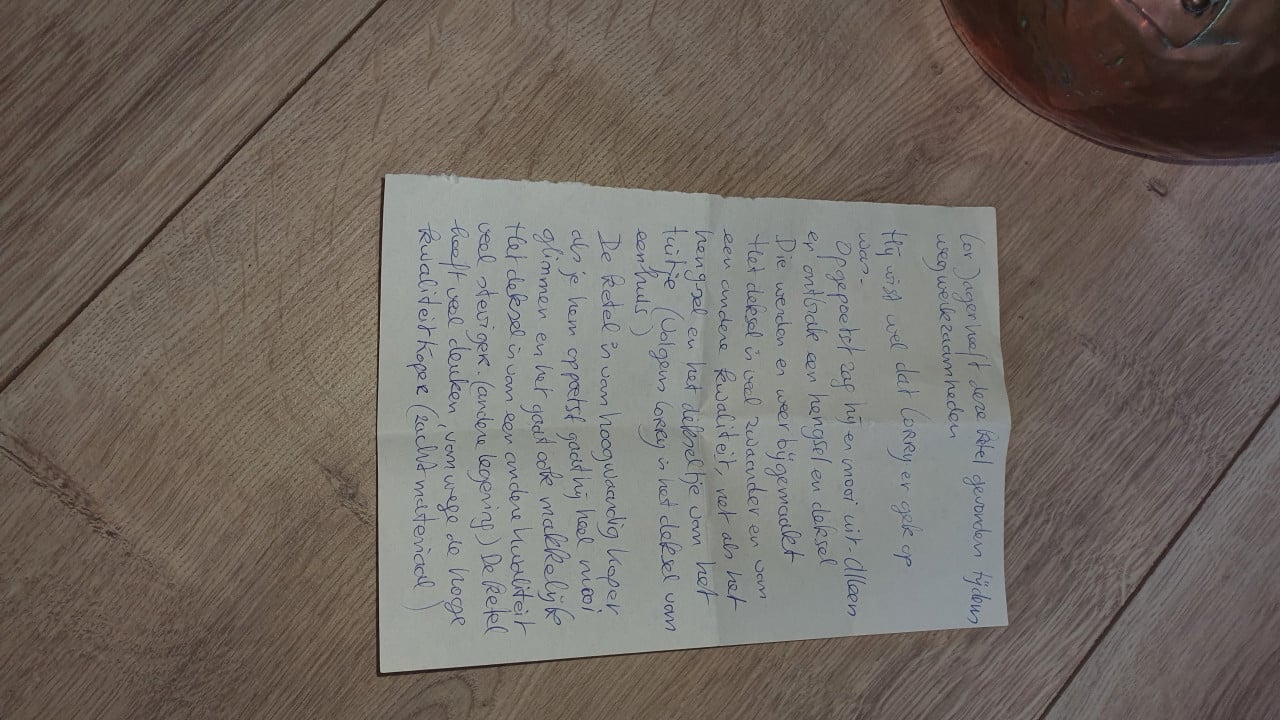 Cor Jager heeft deze ketel gevonden tijdens
wegwerkzaamheden
Hij wist wel dat Corry er gek op
was.
Opgepoetst zag hij er mooi uit. Alleen
er ontbrak een hengsel en deksel
Die werden er weer bijgemaakt
Het deksel is veel zwaarder en van
een andere kwaliteit, net als het
hengsel en het dekseltje van het
tuitje (Volgens Corry is het deksel van
een huls)
De ketel is van hoogwaardig koper
als je hem oppoetst gaat hij heel mooi
glimmen en het gaat ook makkelijk
Het deksel is van een andere kwaliteit
veel steviger. (andere legering) De ketel
heeft veel deuken vanwege de hoge
kwaliteit koper (zacht materiaal)